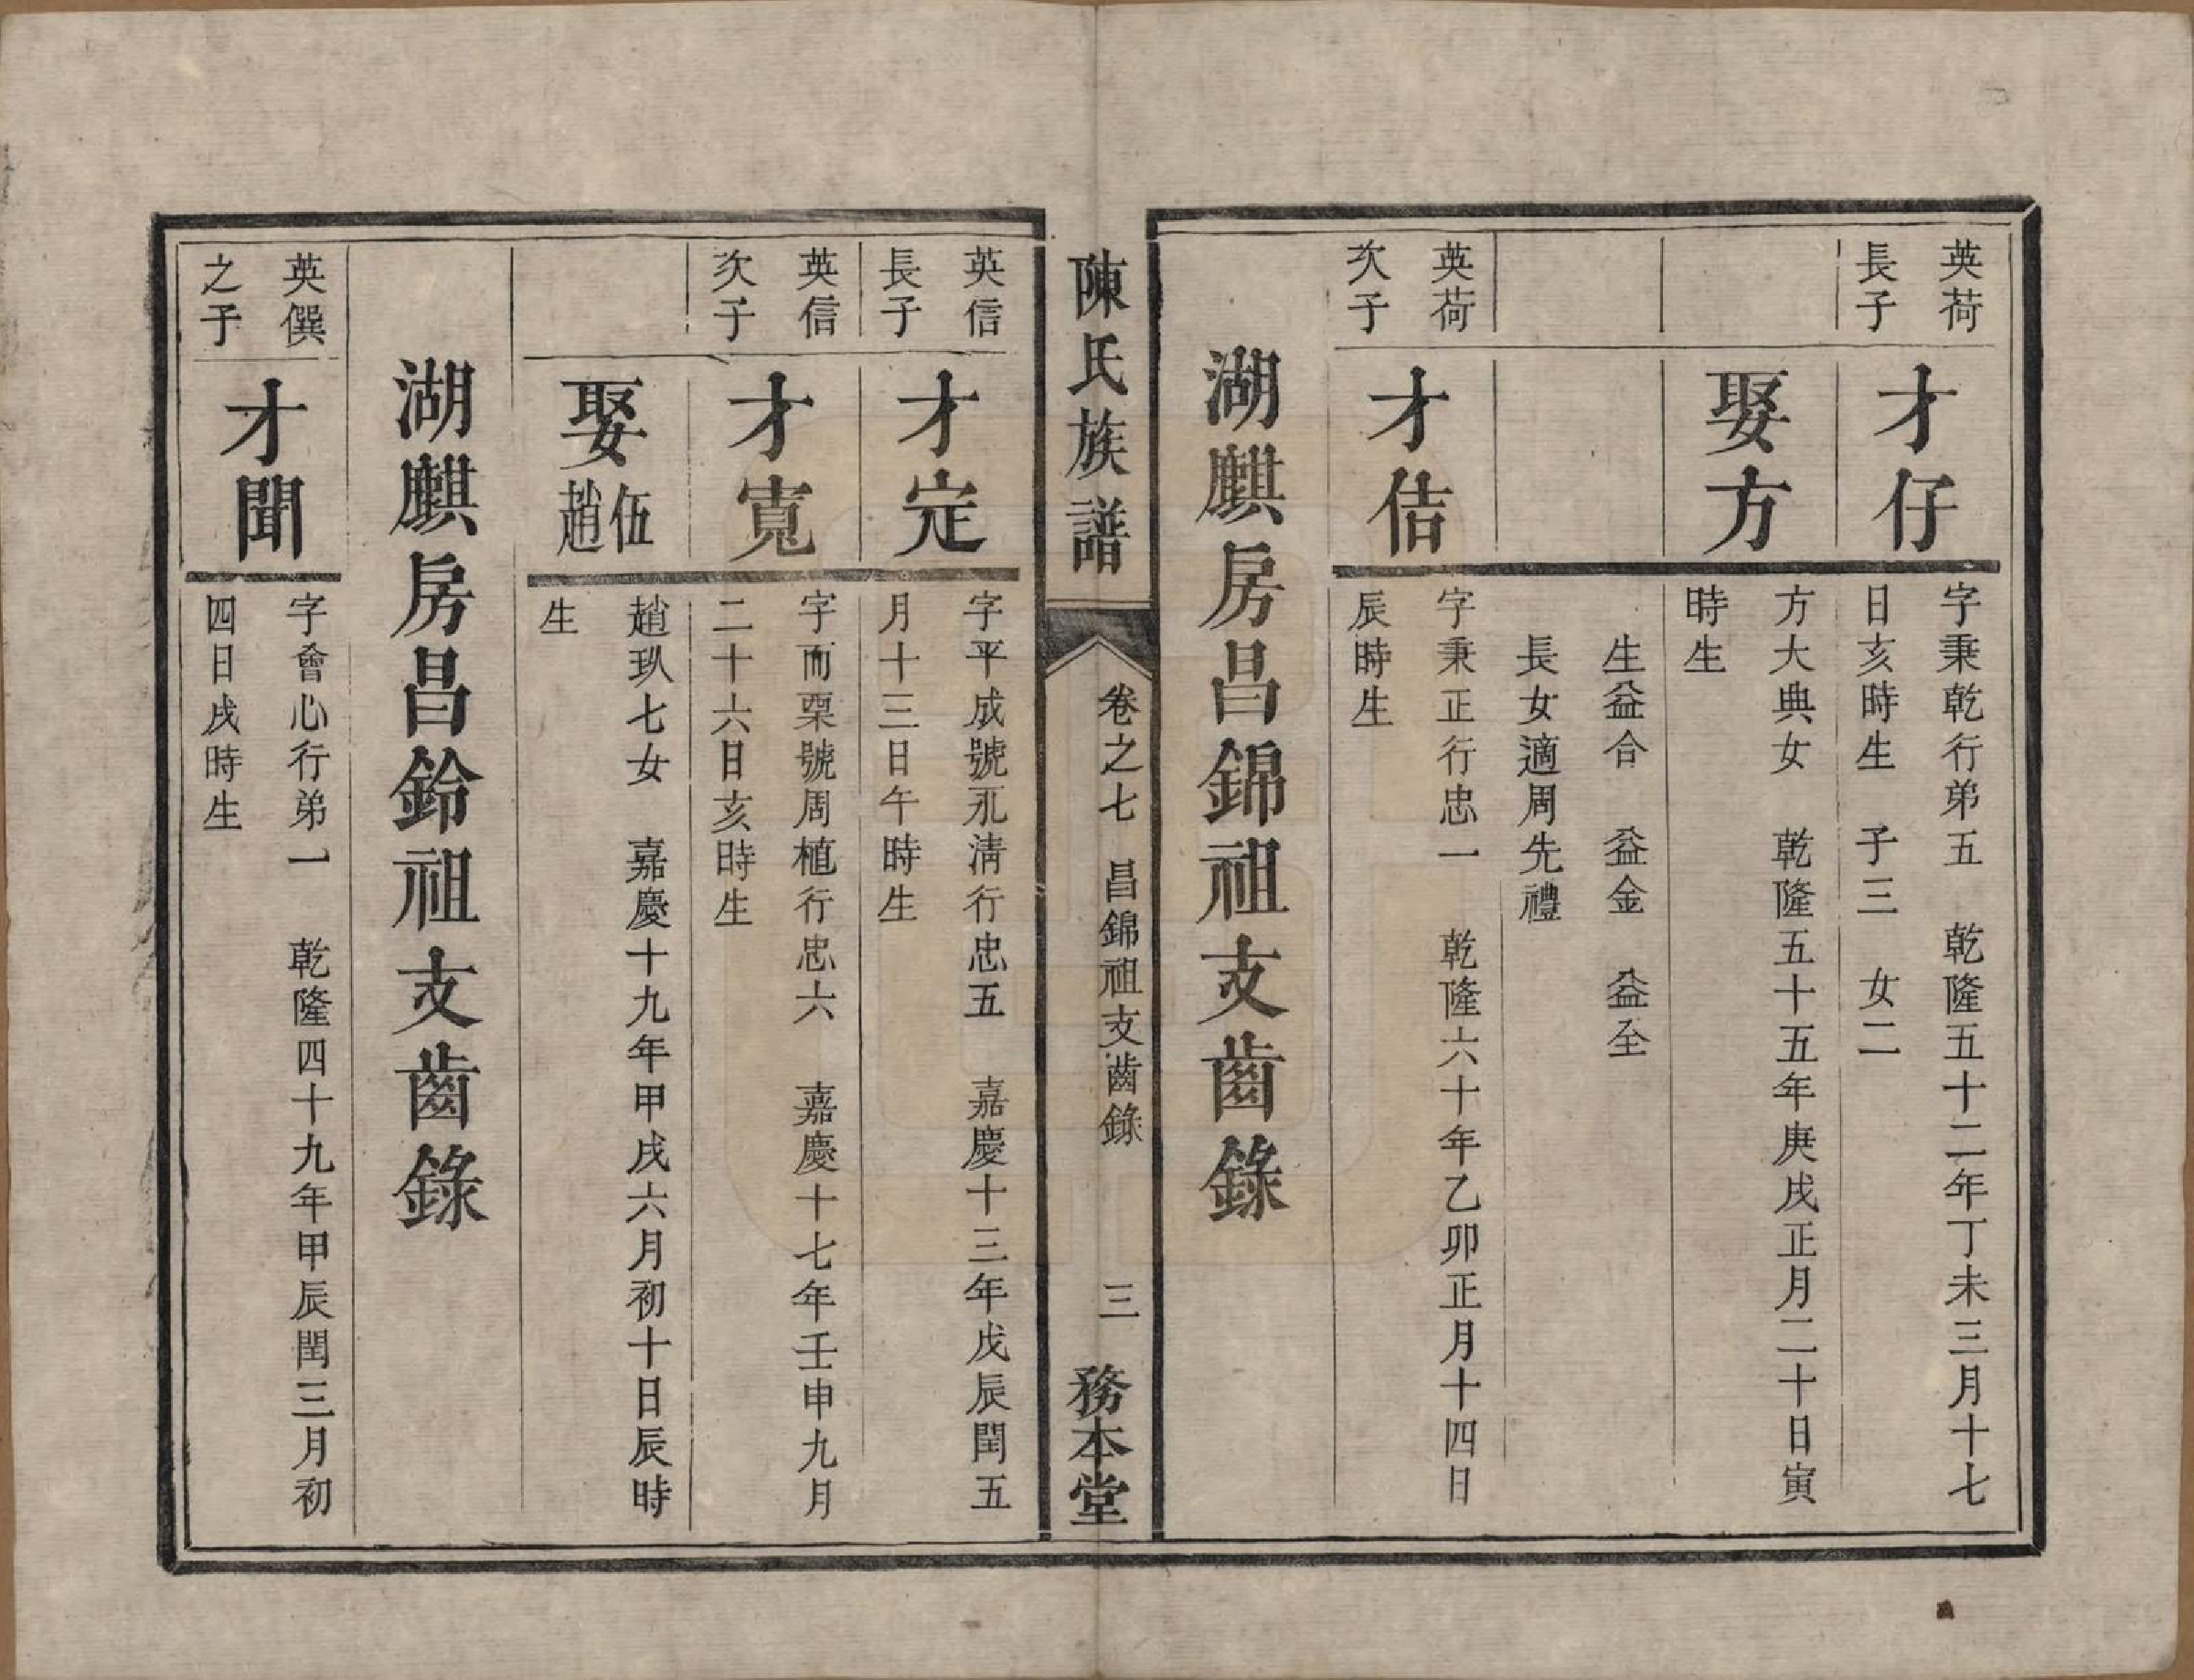 英荷
長子
才仔
字秉乾行弟五　乾隆五十二年丁未三月十七
日亥時生　子三　女二
娶方
方大典女　乾隆五十五年庚戌正月二十日寅
時生
生益合　益金　益至
長女適周先禮
英荷
次子
才佶
字秉正行忠一　乾隆六十年乙卯正月十四日
辰時生
湖麒房昌錦祖支齒錄
陳氏族譜
卷之七　昌錦祖支齒錄
三
務本堂
英信
長子
才定
字平成號永清行忠五　嘉慶十三年戊辰閏五
月十三日午時生
英信
次子
才寬
字而栗號周植行忠六　嘉慶十七年壬申九月
二十六日亥時生
娶伍
趙
趙玖七女　嘉慶十九年甲戌六月初十日辰時
生
湖麒房昌鈴祖支齒錄
英僎
之子
才聞
字會心行弟一　乾隆四十九年甲辰閏三月初
四日戌時生